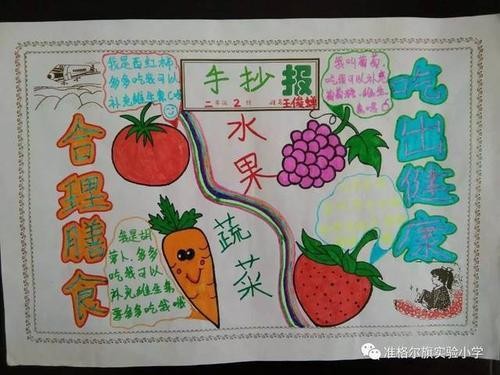 手抄报
二年级2班 姓名王俊蝉
我是西红柿
多多吃我可以
补充维生素C哈
我叫葡萄
吃我可以补充
葡萄糖、维生
素哈
合理膳食
吃出健康
水果
蔬菜
我是胡
萝卜,多多
吃我可以
补充维生素
要多多吃我哦
准格尔旗实验小学